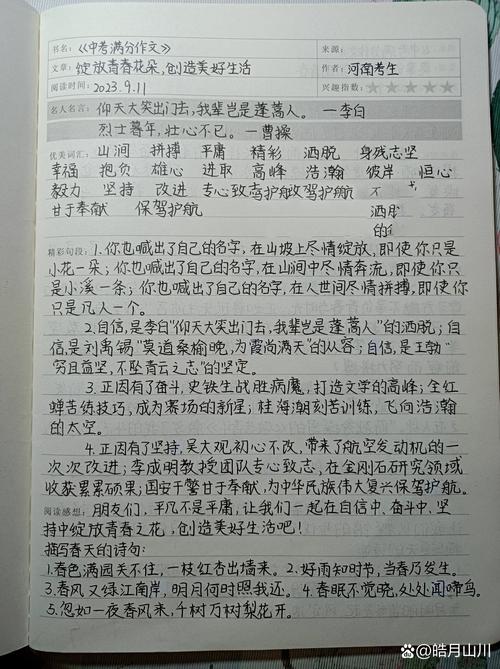 书名:《中考满分作文》 来源:
文章: 绽放青春花朵,创造美好生活 作者: 河南考生
阅读时间: 2023.9.11 兴趣指数: ★★★★★
名人名言: 仰天大笑出门去,我辈岂是蓬蒿人。 —李白
烈士暮年,壮心不已。 —曹操
优美词汇: 山涧 拼搏 平庸 精彩 洒脱 身残志坚
幸福 抱负 雄心 进取 高峰 浩瀚 彼岸 恒心
毅力 坚持 改进 专心致志驾护航
甘于奉献 保驾护航 洒脱
精彩句段: 1.你也喊出了自己的名字,在山坡上尽情绽放,即使你只是
小花一朵;你也喊出了自己的名字,在山间中尽情奔流,即使你只
是小溪一条;你也喊出了自己的名字,在人世间尽情拼搏,即使你
只是凡人一个。
2.自信,是李白"仰天大笑出门去,我辈岂是蓬蒿人"的洒脱;自
信,是刘禹锡"莫道桑榆晚,为霞尚满天"的从容;自信,是王勃"
穷且益坚,不坠青云之志"的坚定。
3.正因有了奋斗,史铁生战胜病魔,打造文学的高峰;全红
蝉苦练技巧,成为赛场的新星;桂海潮刻苦训练,飞向浩瀚
的太空。
4.正因有了坚持,吴大观初心不改,带来了航空发动机的一
次次改进;李成明教授团队专心致志,在金刚石研究领域
收获累累硕果;国安干警甘于奉献,为中华民族伟大复兴保驾护航。
阅读感想: 朋友们,平凡不是平庸,让我们一起在自信中、奋斗中、坚
持中绽放青春之花,创造美好生活吧!
描写春天的诗句:
1.春色满园关不住,一枝红杏出墙来。2.好雨知时节,当春乃发生。
3.春风又绿江南岸,明月何时照我还。4.春眠不觉晓,处处闻啼鸟。
5.忽如一夜春风来,千树万树梨花开。
Bai度百科 @皓月山川